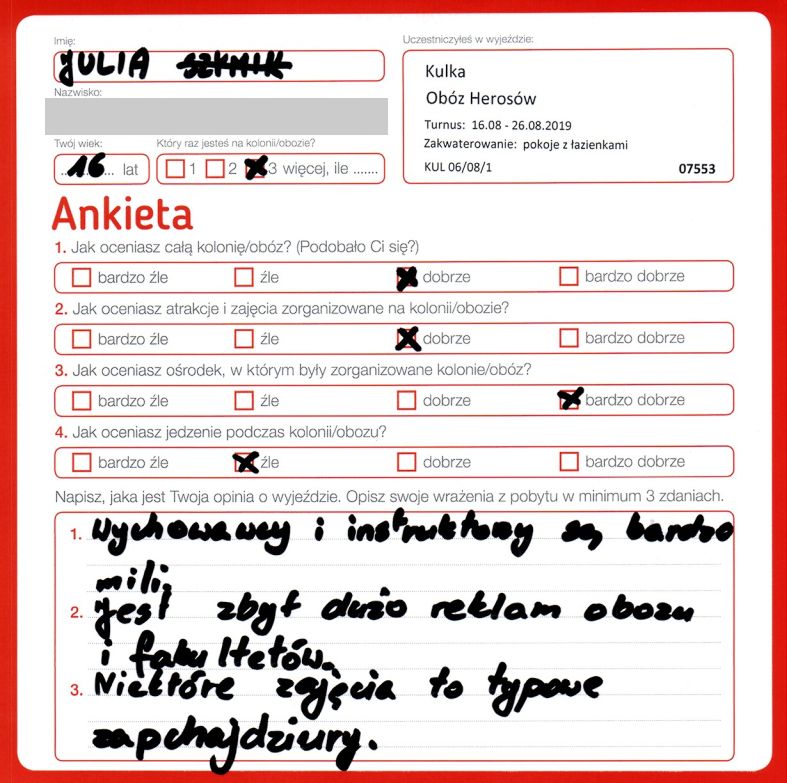 Imię:
JULIA
Uczestniczyłeś w wyjeździe:
Kulka
Obóz Herosów
Turnus: 16.08 - 26.08.2019
Zakwaterowanie: pokoje z łazienkami
KUL 06/08/1 07553
Nazwisko:
Twój wiek: Który raz jesteś na kolonii/obozie?
16 lat 1 2 3 więcej, ile .......
Ankieta
1. Jak oceniasz całą kolonię/obóz? (Podobało Ci się?)
bardzo źle źle dobrze bardzo dobrze
2. Jak oceniasz atrakcje i zajęcia zorganizowane na kolonii/obozie?
bardzo źle źle dobrze bardzo dobrze
3. Jak oceniasz ośrodek, w którym były zorganizowane kolonie/obóz?
bardzo źle źle dobrze bardzo dobrze
4. Jak oceniasz jedzenie podczas kolonii/obozu?
bardzo źle źle dobrze bardzo dobrze
Napisz, jaka jest Twoja opinia o wyjeździe. Opisz swoje wrażenia z pobytu w minimum 3 zdaniach.
1. Wychowawcy i instruktorzy są bardzo
mili.
2. Jest zbyt dużo reklam obozu
i fakultetów.
3. Niektóre zajęcia to typowe
zapchajdziury.